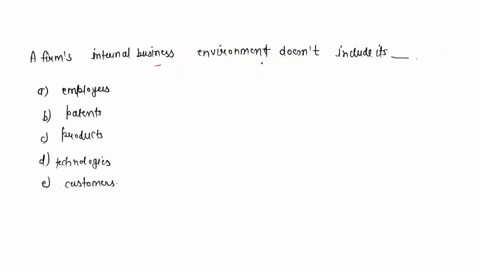 A firm's internal business environment doesn't include its __.
a) employees
b) patents
c) products
d) technologies
e) customers.